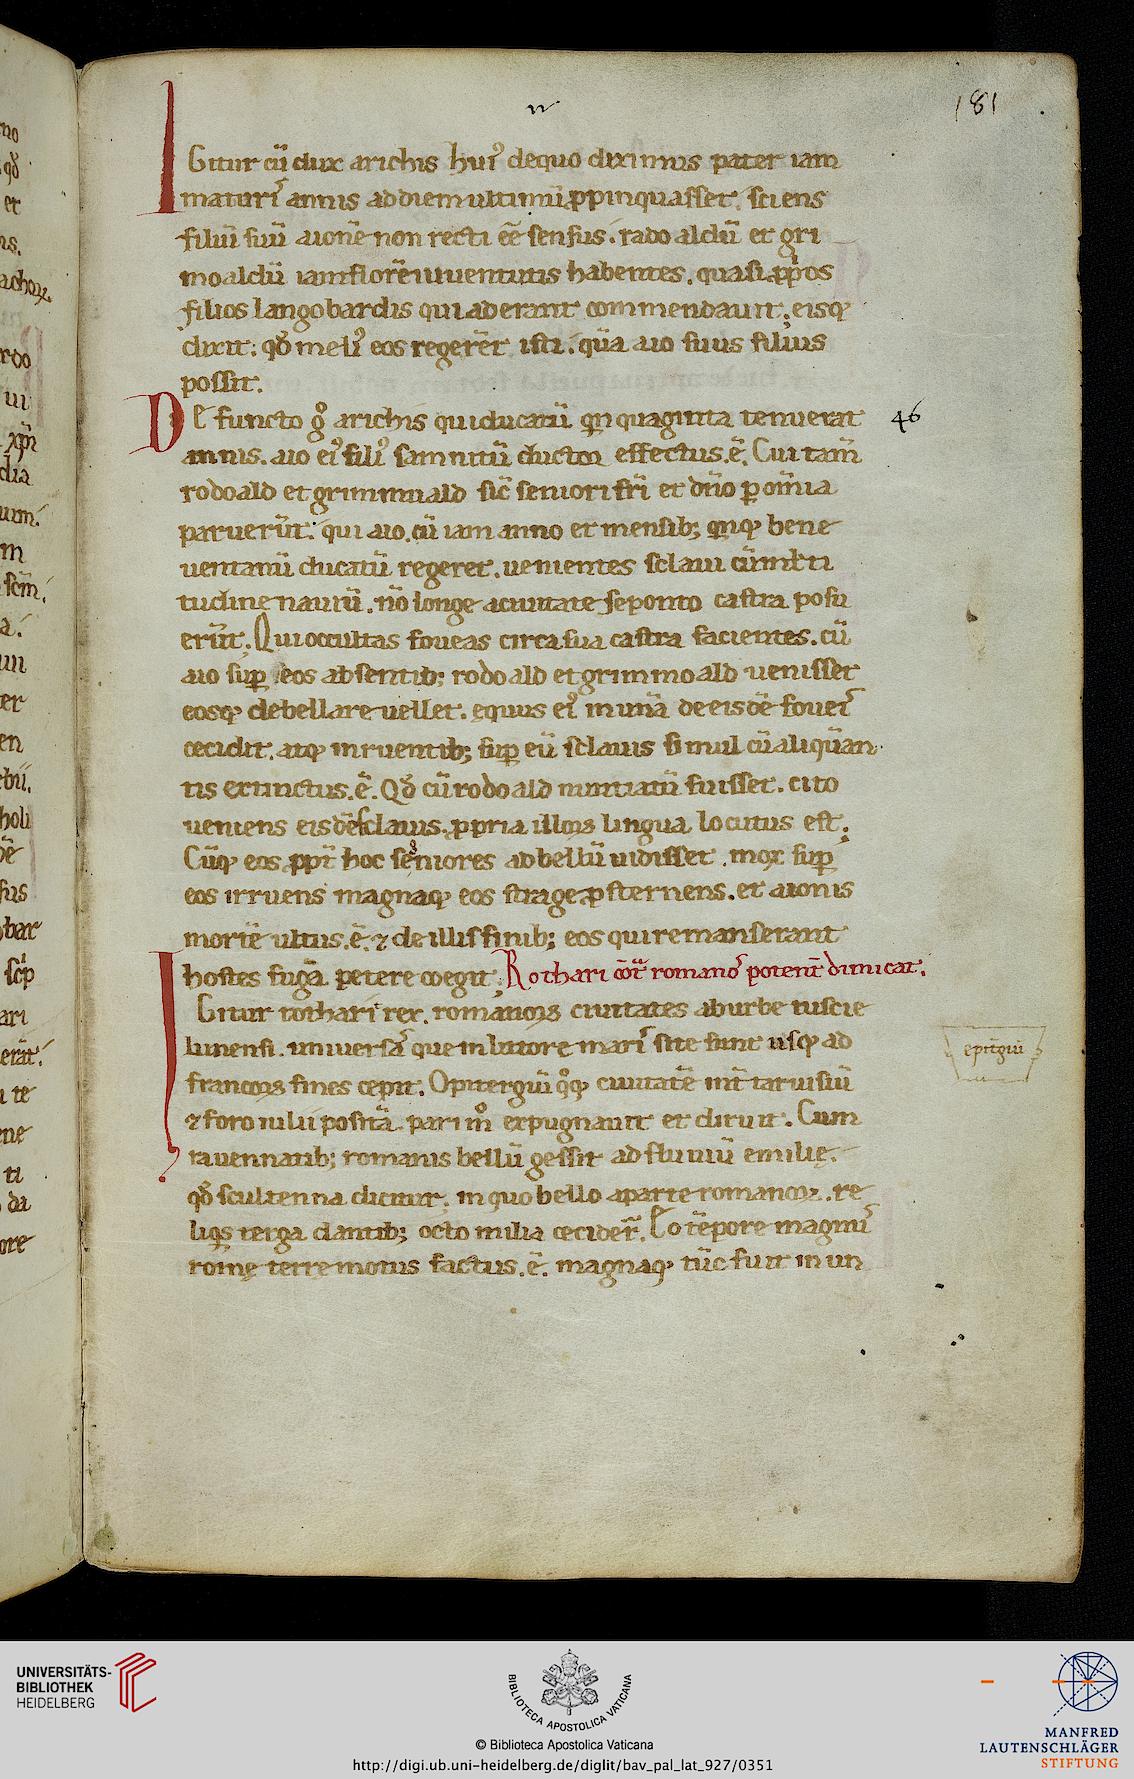 IIII
181
IGitur cũ dux arichis hui᾽ dequo diximus pater iam
maturi᾽ annis addiem ultimũ ꝓpinquasset. sciens
filiũ suũ aionẽ non recti eẽ sensus. rado aldũ et gri
moaldũ iamflorẽ iuuentutis habentes. quasi ꝓprios
filios langobardis qui aderant commendauit; eisqꝫ
dixit: qđ meli᾽ eos regerẽt isti. quã aio suus filius
possit.
DE functo gͦ arichis qui ducatũ qͥnquaginta tenuerat
46
annis. aio ei᾽ fili᾽ samnitũ ductor effectus.ẽ. Cui tam̃
rodoald et grimmuald sic̃ seniori fr̃i et dño ꝑ om̃ia
paruerũt. qui aio. cũ iam anno et mensibꝫ qͥnqꝫ bene
uentanũ ducatũ regeret. uenientes sclaui cũ ml̃ti
tudine nauiũ. nõ longe aciuitate seponto castra posu
erũt. Qui occultas foueas circa sua castra facientes. cũ
aio suꝑ eos absentibꝫ rodoald et grimmoald uenisset
eosqꝫ debellare uellet. equus ei᾽ in unã de eisdẽ foueis᾽
cecidit. atqꝫ inruentibꝫ suꝑ eũ sclauis simul cũ aliquan
tis extinctus.ẽ. Qđ cũ rodoald nuntiatũ fuisset. cito
ueniens eisdẽ sclauis. ꝓpria illoꝝ lingua locutus est.
Cũqꝫ eos ꝓpt̃ hoc segniores ad bellũ uidisset. mox suꝑ
eos irruens magnaqꝫ eos strage ꝓsternens. et aionis
mortẽ ultus.ẽ. ⁊ de illis finibꝫ eos qui remanserant
hostes fugã petere coegit; Rothari cõt̃ romanos᾽ potent̃ dimicat.
IGitur rothari rex. romanoꝝ ciuitates aburbe tuscie
lunensi. uniuersas᾽ que in litore maris᾽ site sunt usqꝫ ad
epit̃giũ
francoꝝ fines cepit. Opitergiũ qͦqꝫ ciuitatẽ int̃ taruisiũ
⁊ foro iulii positã. pari mͦ expugnauit et diruit. Cum
rauennatibꝫ romanis bellũ gessit ad fluuiũ emilię.
qđ scultenna dicitur. in quo bello aparte romanoꝝ. re
liqͥs terga dantibꝫ octo milia cecider̃. Eo tẽpore magnus᾽
romę terre motus factus.ẽ. magnaqꝫ tũc fuit in un
UNIVERSITÄTS-
BIBLIOTHEK
HEIDELBERG
BIBLIOTECA APOSTOLICA VATICANA
© Biblioteca Apostolica Vaticana
http://digi.ub.uni-heidelberg.de/diglit/bav_pal_lat_927/0351
MANFRED
LAUTENSCHLÄGER
STIFTUNG